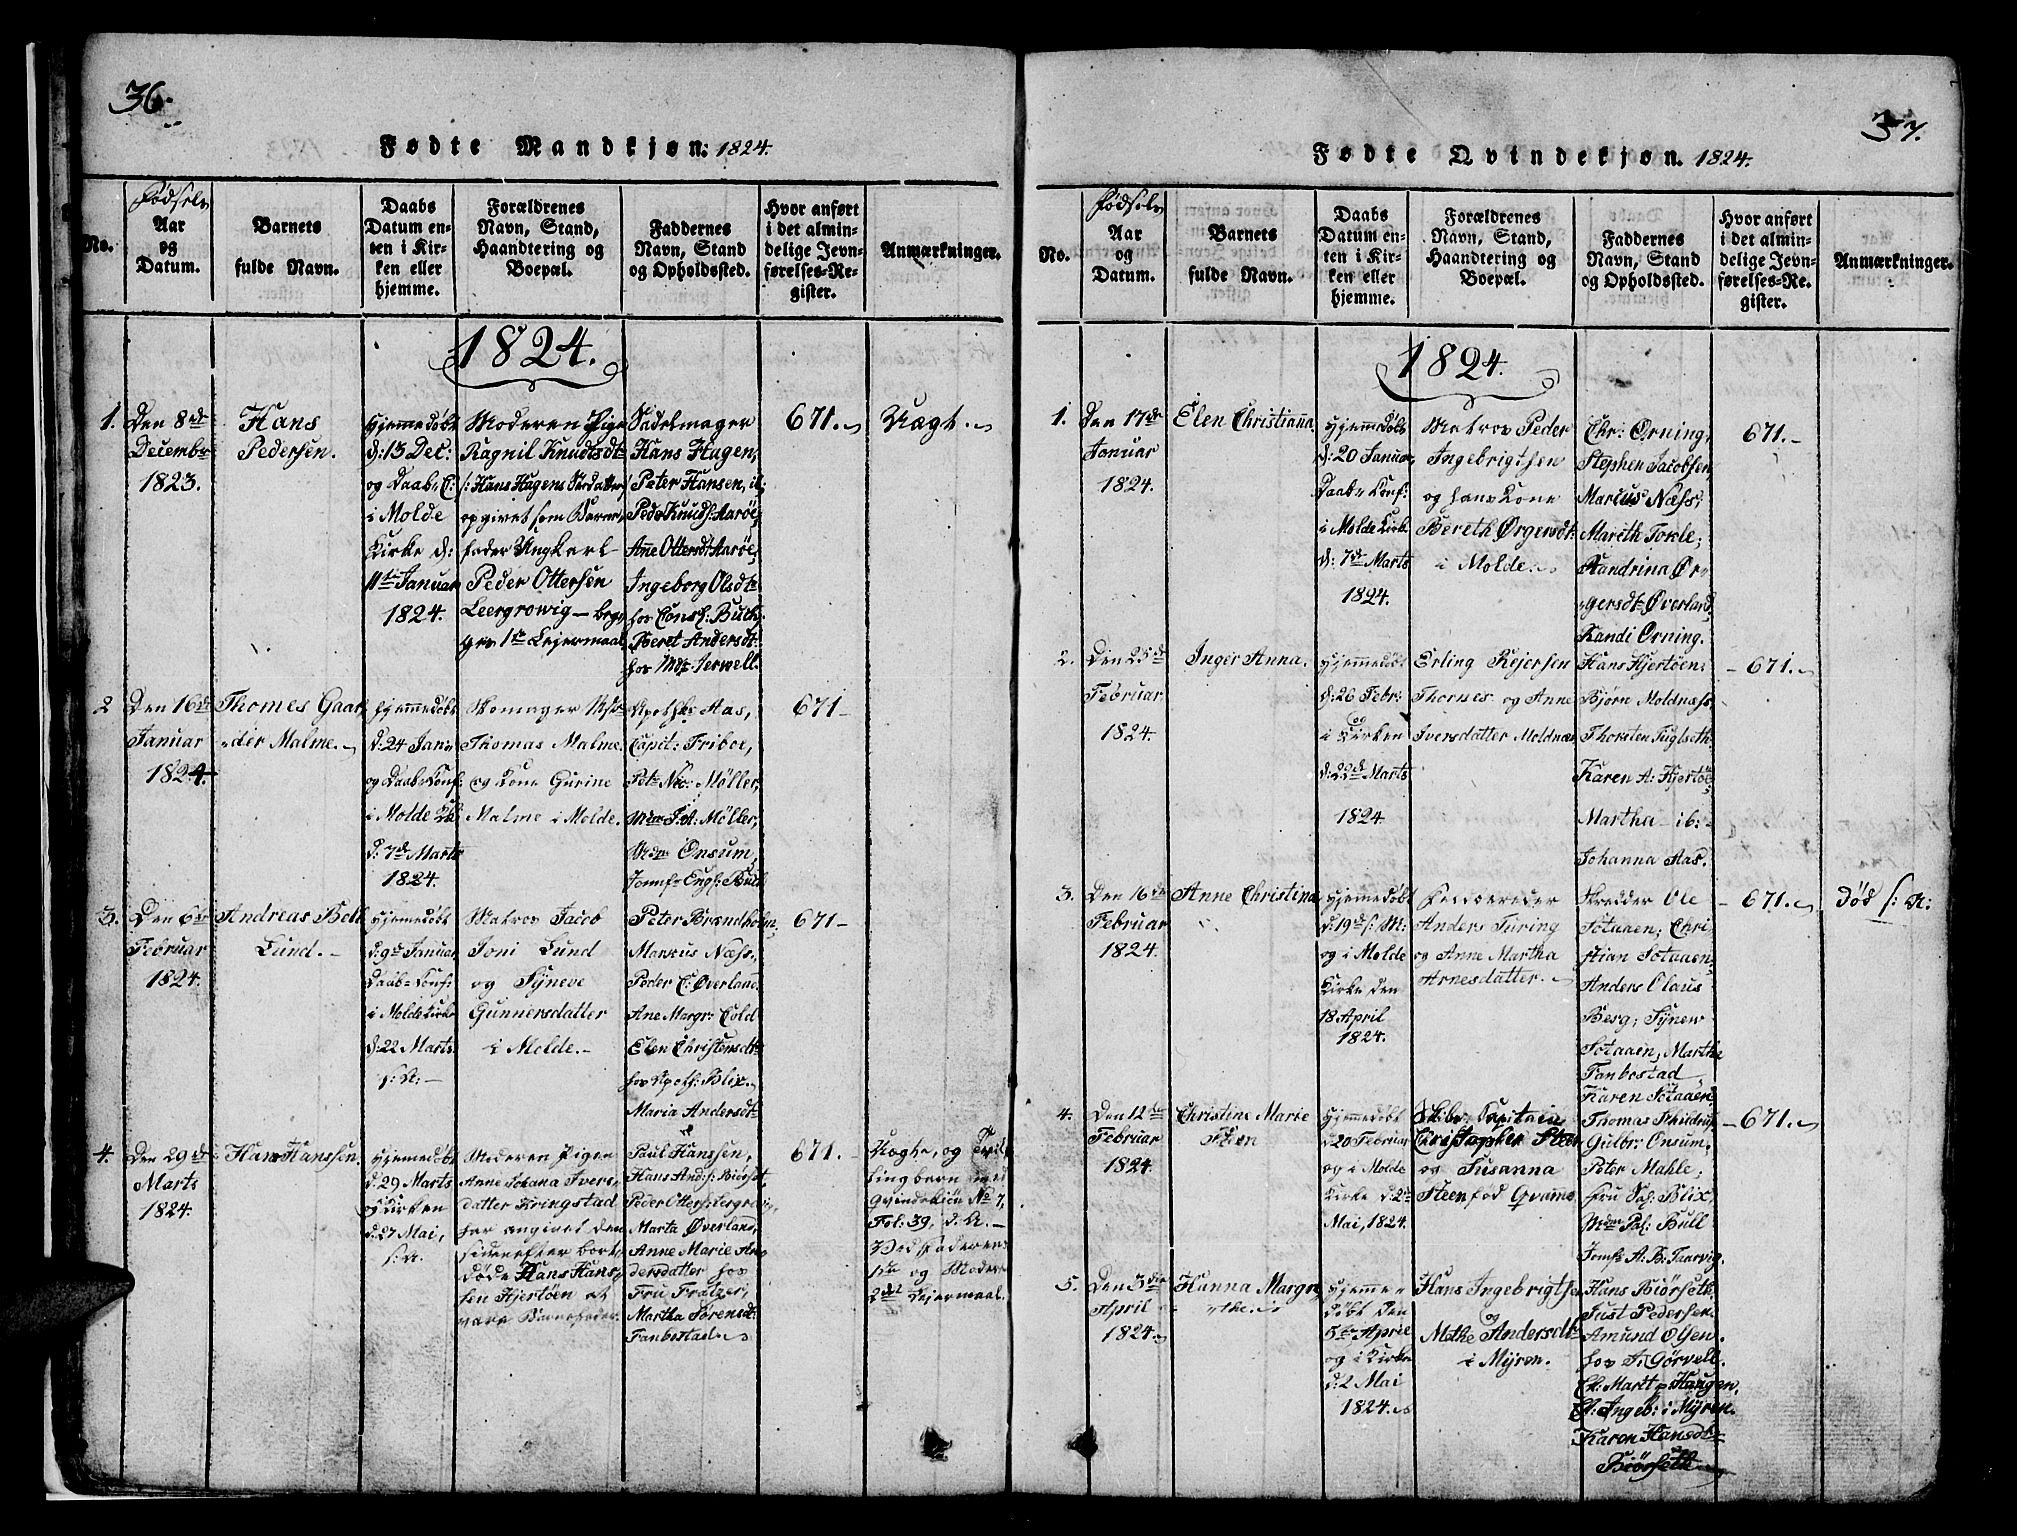 36.
Fødte Mandkjøn: 1824.
No.
Fødsels
Aar
og
Datum.
Barnets
fulde Navn.
Daabs
Datum en-
ten i Kir-
ken eller
hjemme.
Forældrenes
Navn, Stand,
Haandtering og
Boepæl.
Faddernes
Navn, Stand
og Opholdssted.
Hvor anført
i det almin-
delige Jevn-
førelses-Re-
gister.
Anmærkninger.
1824.
1.
Den 8de
Decembr
1823.
Hans
Pedersen.
Hjemmedøbt
d: 15 Dec:
og Daab. C:
i Molde
Kirke d:
11te Januar
1824.
Moderen Pige
Ragnil Knudtsdt
/: Hans Hagens
opgivet som Barne
fader Ungkarl
Peder Ottersen
Leergrowig – beg
ges 1te Leiermaal
Sadelmager
Hans Hagen,
Peter Hansen, ib:
Peder Knuds: Aarøe,
Anne Ottersdt: Aarøe,
Ingeborg Olsdt
hos Cons: Buch,
Beret Andersdt
hos Jervell.
671.
Uægt.
2
Den 16de
Januar
1824.
Thomes Gaar
der Malme.
Hjemmedøbt
d: 24 Jan:
og Daab Conf:
i Molde K:
d: 7de Marts
1824.
Skomager
Thomas Malme
og Kone Gurine
Malme i Molde.
Apothk: Aas,
Capit: Friboe,
Nec: Møller,
Mdm F. A: Møller,
Mdm Onsum,
Jomf: Eng: Bull
671–
3.
Den 6te
Februar
1824.
Andreas Bolt
Lund.
Hjemmedøbt
d: 9de Januar
Daab-Conf:
i Molde Kirke
d: 22 Marts
s: A: –
Matros Jacob
Joni Lund
og Syneve
Gunnersdatter
i Molde.–
Peter Brandholm,
Marcus Næss,
Peder C: Øverland
Ane Margr: Cold
Elen Christensdt
hos Apoth: Blix.
Maria Andersdt
671–
4.
Den 29de
Marts
1824.
Hans Hanssen
Hjemmedøbt
d: 29 Marts
og Kirken
d: 27 Mai,
s: A.
Moderen Pigen
Anne Johana Ivers
datter Kringstad
har angivet den
sidenefter bort
døde Hans Hans
sen Hjertøen at
være Barnefader.
Paul Hanssen,
Hans And: Biørset,
Peder Otters: Lergrovig,
Marta Øverland,
Anne Marie An
dersdatter hos
Fru
Martha Sørensdt
Fanbostad
671.
Uægte, og Tvil
lingbarn med
Qvindekiøn No 7,
Fol: 39, d. A.–
Ved Faderens
1te og Moderens
2det Leiermaal.
37.
Fødte Qvindekjøn. 1824.
No.
Fødsels
Aar
og
Datum.
Barnets
fulde Navn.
Daabs
Datum en-
ten i Kir-
ken eller
hjemme.
Forældrenes
Navn, Stand,
Haandtering og
Boepæl.
Faddernes
Navn, Stand
og Opholdssted.
Hvor anført
i det almin-
delige Jevn-
førelses-Re-
gister.
Anmærkninger.
1824.
1.
Den 17de
Januar
1824.
Elen Christiana.
Hjemmedøbt
d: 20 Januar,
Daab Conf:
i Molde Kirke
d: 7de Marts
1824.
Matros Peder
Ingebrigtsen
og hans Kone
Bereth Ørgersdt:
i Molde.
Chr: Ørning,
Stephen Jacobsen,
Marcus Næss,
Mareth Torle;
Randrina Ør
gersdt: Øverland
Randi Ørning.
671.–
2.
Den 25de
Februar
1824.
Inger Anna.
Hjemmedøbt
d: 26 Febr:
og
i Kirken
d: 22de Marts
1824.
Erling Rejersen
Thornes og Anne
Iversdatter Moldnæs
Hans Hjertøen.
Bjørn Moldnæss
Thorsten Fuglseth.
Karen A: Hjertøe,
Martha – ib: –
Johanna Aas.
– 671.
3.
Den 16de
Februar
1824.
Anne Christina
Hjemmedøbt
d: 19de s: M:
og i Molde
Kirke den
18 April
1824.
Anders Turing
og Anne Martha
Arnesdatter.
Skredder Ole
Sotaaen; Chri
stian Sotaaen,
Anders Claus
Berg; Synev
Sotaaen, Martha
Fanbostad
Karen Sotaaen.
– 671.
Død s: A:
4.
Den 12te
Februar
1824.
Christine Marie
Steen
Hjemmedøbt
d 20 Februar
og i Molde
Kirke d: 2de
Mai, 1824.
Skibs-Kapitain
Christopher Steen
og Susanna
Steen fød Qvamme
Thomas
Gulbr: Onsum.
Peter Mahle;
Fru Blix,
Mdm Bull
Jomf: A: B: Taarvig.
– 671.
5.
Den 3die
April
1824.
Hanna Margre
the.
Hjemme-
døbt den
5te April
og i Kirke
d: 2 Mai
1824.
Hans Ingebrigtsen
og
Methe Andersdt
i Myren.
Hans Biørseth.
Just Pedersen
Amund Olsen.
hos J. Gørvell.
El: Marit p Haugen,
El: Ingeb: i Myren.
Karen Hansdt
Biørseth